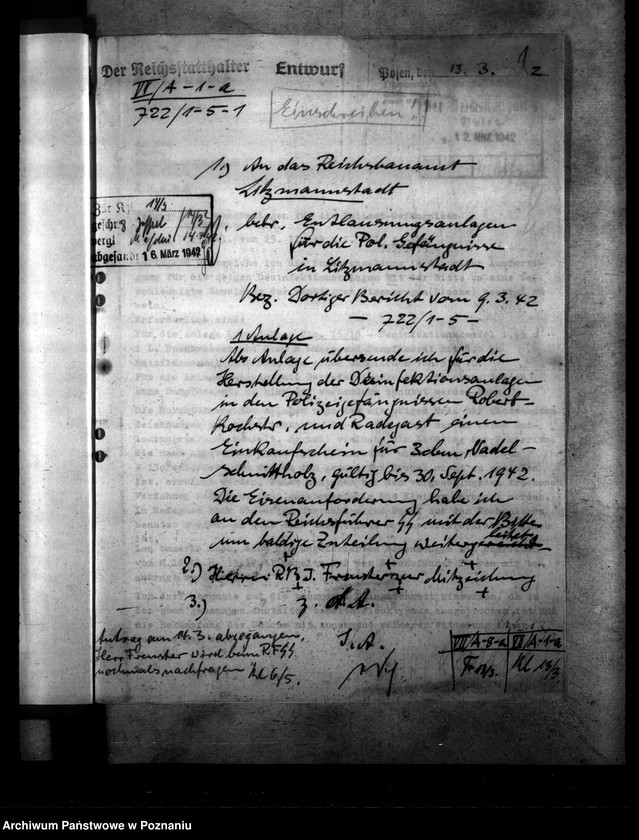 Der Reichsstatthalter Entwurf Posen, den 13. 3. 42
VI/A-1-a
722/1-5-1
Einschreiben!
12. März 1942
1.) An das Reichsbauamt
Litzmannstadt
14/3
abgesandt 16. März 1942
betr. Entlausungsanlagen
für die Pol. Gefängnisse
in Litzmannstadt
Bez. Dortiger Bericht vom 9.3.42
— 722/1-5 —
1 Anlage
Als Anlage übersende ich für die
Herstellung der Desinfektionsanlagen
in den Polizeigefängnissen Robert-
Kochstr. und Radegast einen
Einkaufschein für 3 cbm Nadel-
schnittholz, gültig bis 30. Sept. 1942.
Die Eisenanforderung habe ich
an den Reichsführer SS mit der Bitte
um baldige Zuteilung weitergeleitet.
2.) Herrn RBI. Fremster zur Mitzeichnung
3.) z. d. A.
I. A.
Antrag am 14.3. abgegangen.
Herr Fremster wird beim RFSS
nochmals nachfragen Kl 6/5.
VI/A-1-a
Kl 13/3